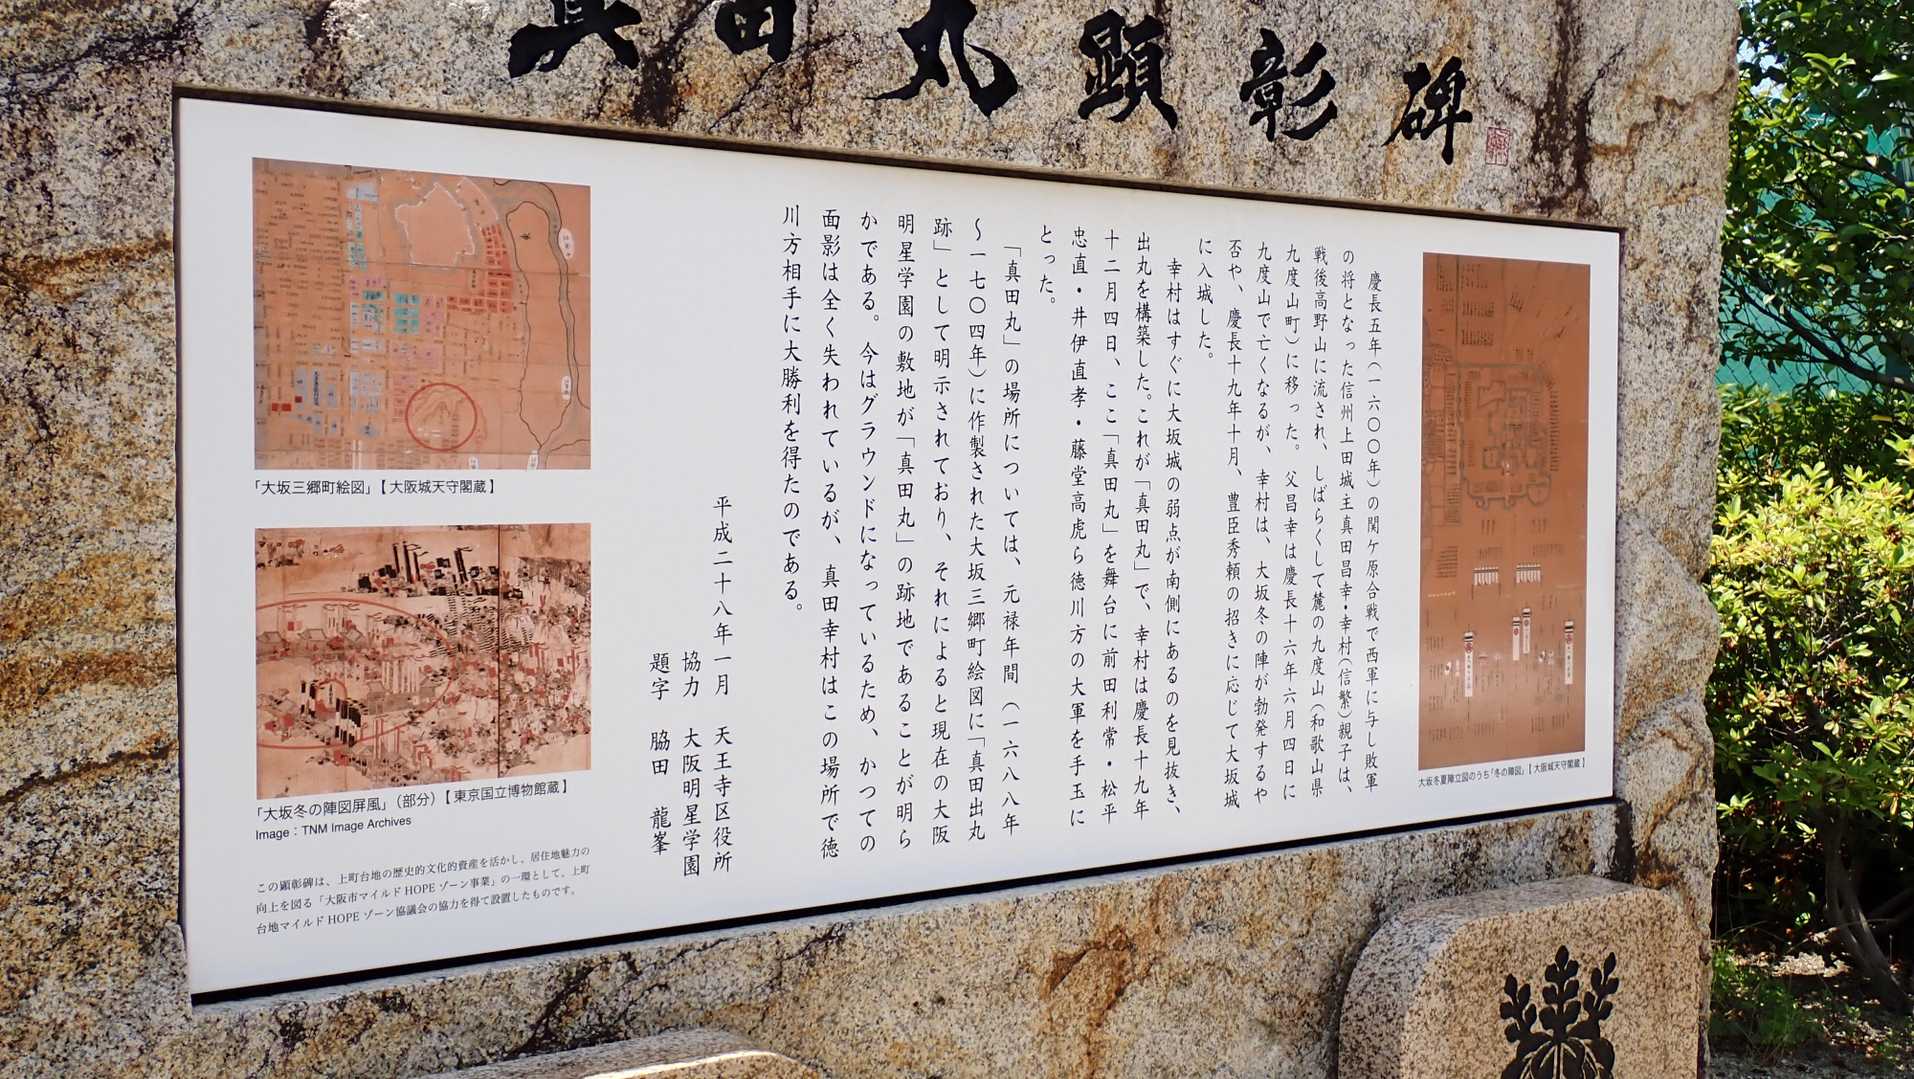 真田丸顕彰碑
慶長五年（一六〇〇年）の関ケ原合戦で西軍に与し敗軍
の将となった信州上田城主真田昌幸・幸村（信繁）親子は、
戦後高野山に流され、しばらくして麓の九度山（和歌山県
九度山町）に移った。父昌幸は慶長十六年六月四日に
九度山で亡くなるが、幸村は、大坂冬の陣が勃発するや
否や、慶長十九年十月、豊臣秀頼の招きに応じて大坂城
に入城した。
幸村はすぐに大坂城の弱点が南側にあるのを見抜き、
出丸を構築した。これが「真田丸」で、幸村は慶長十九年
十二月四日、ここ「真田丸」を舞台に前田利常・松平
忠直・井伊直孝・藤堂高虎ら徳川方の大軍を手玉に
とった。
「真田丸」の場所については、元禄年間（一六八八年
～一七〇四年）に作製された大坂三郷町絵図に「真田出丸
跡」として明示されており、それによると現在の大阪
明星学園の敷地が「真田丸」の跡地であることが明ら
かである。今はグラウンドになっているため、かつての
面影は全く失われているが、真田幸村はこの場所で徳
川方相手に大勝利を得たのである。
平成二十八年一月　天王寺区役所
協力　大阪明星学園
題字　脇田　龍峯
大坂冬夏陣立図のうち「冬の陣図」【大阪城天守閣蔵】
「大坂三郷町絵図」【大阪城天守閣蔵】
「大坂冬の陣図屏風」（部分）【東京国立博物館蔵】
Image：TNM Image Archives
この顕彰碑は、上町台地の歴史的文化的資産を活かし、居住地魅力の
向上を図る「大阪市マイルドHOPEゾーン事業」の一環として、上町
台地マイルドHOPEゾーン協議会の協力を得て設置したものです。